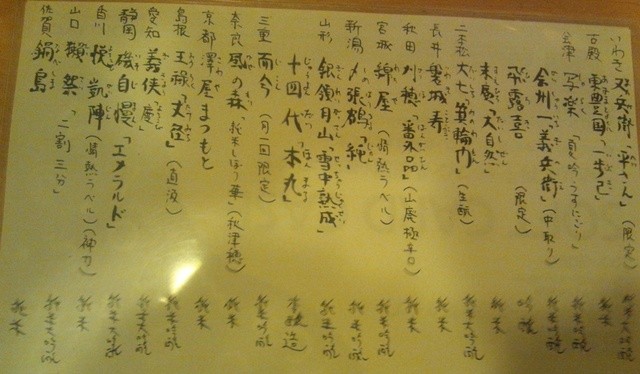 いわき 又兵衛「平さん」(限定) 純米吟醸
古殿 東豊国「一歩己」 純米
会津 写楽「夏吟うすにごり」 純米吟醸
会州一義兵衛(中取り) 純米吟醸
飛露喜(限定) 吟醸
末廣「大自然」 純米
二本松 大七「箕輪門」(生酛) 純米大吟醸
長井 寿 純米
秋田 刈穂「番外品」(山廃極辛口) 純米
宮城 綿屋(情熱ラベル) 純米吟醸
新潟 〆張鶴「純」 純米吟醸
山形 銀嶺月山「雪中熟成」 純米吟醸
十四代「本丸」 本醸造
三重 而今(月一回限定) 純米吟醸
奈良 風の森「純米しぼり華」(秋津穂) 純米
京都 澤屋まつもと 純米
島根 王祿「丈径」(直汲) 純米吟醸
愛知 義侠「慶」 純米大吟醸
静岡 磯自慢「エメラルド」 純米大吟醸
香川 悦凱陣(情熱ラベル)(神力) 純米
山口 獺祭「二割三分」 純米大吟醸
佐賀 鍋島 純米